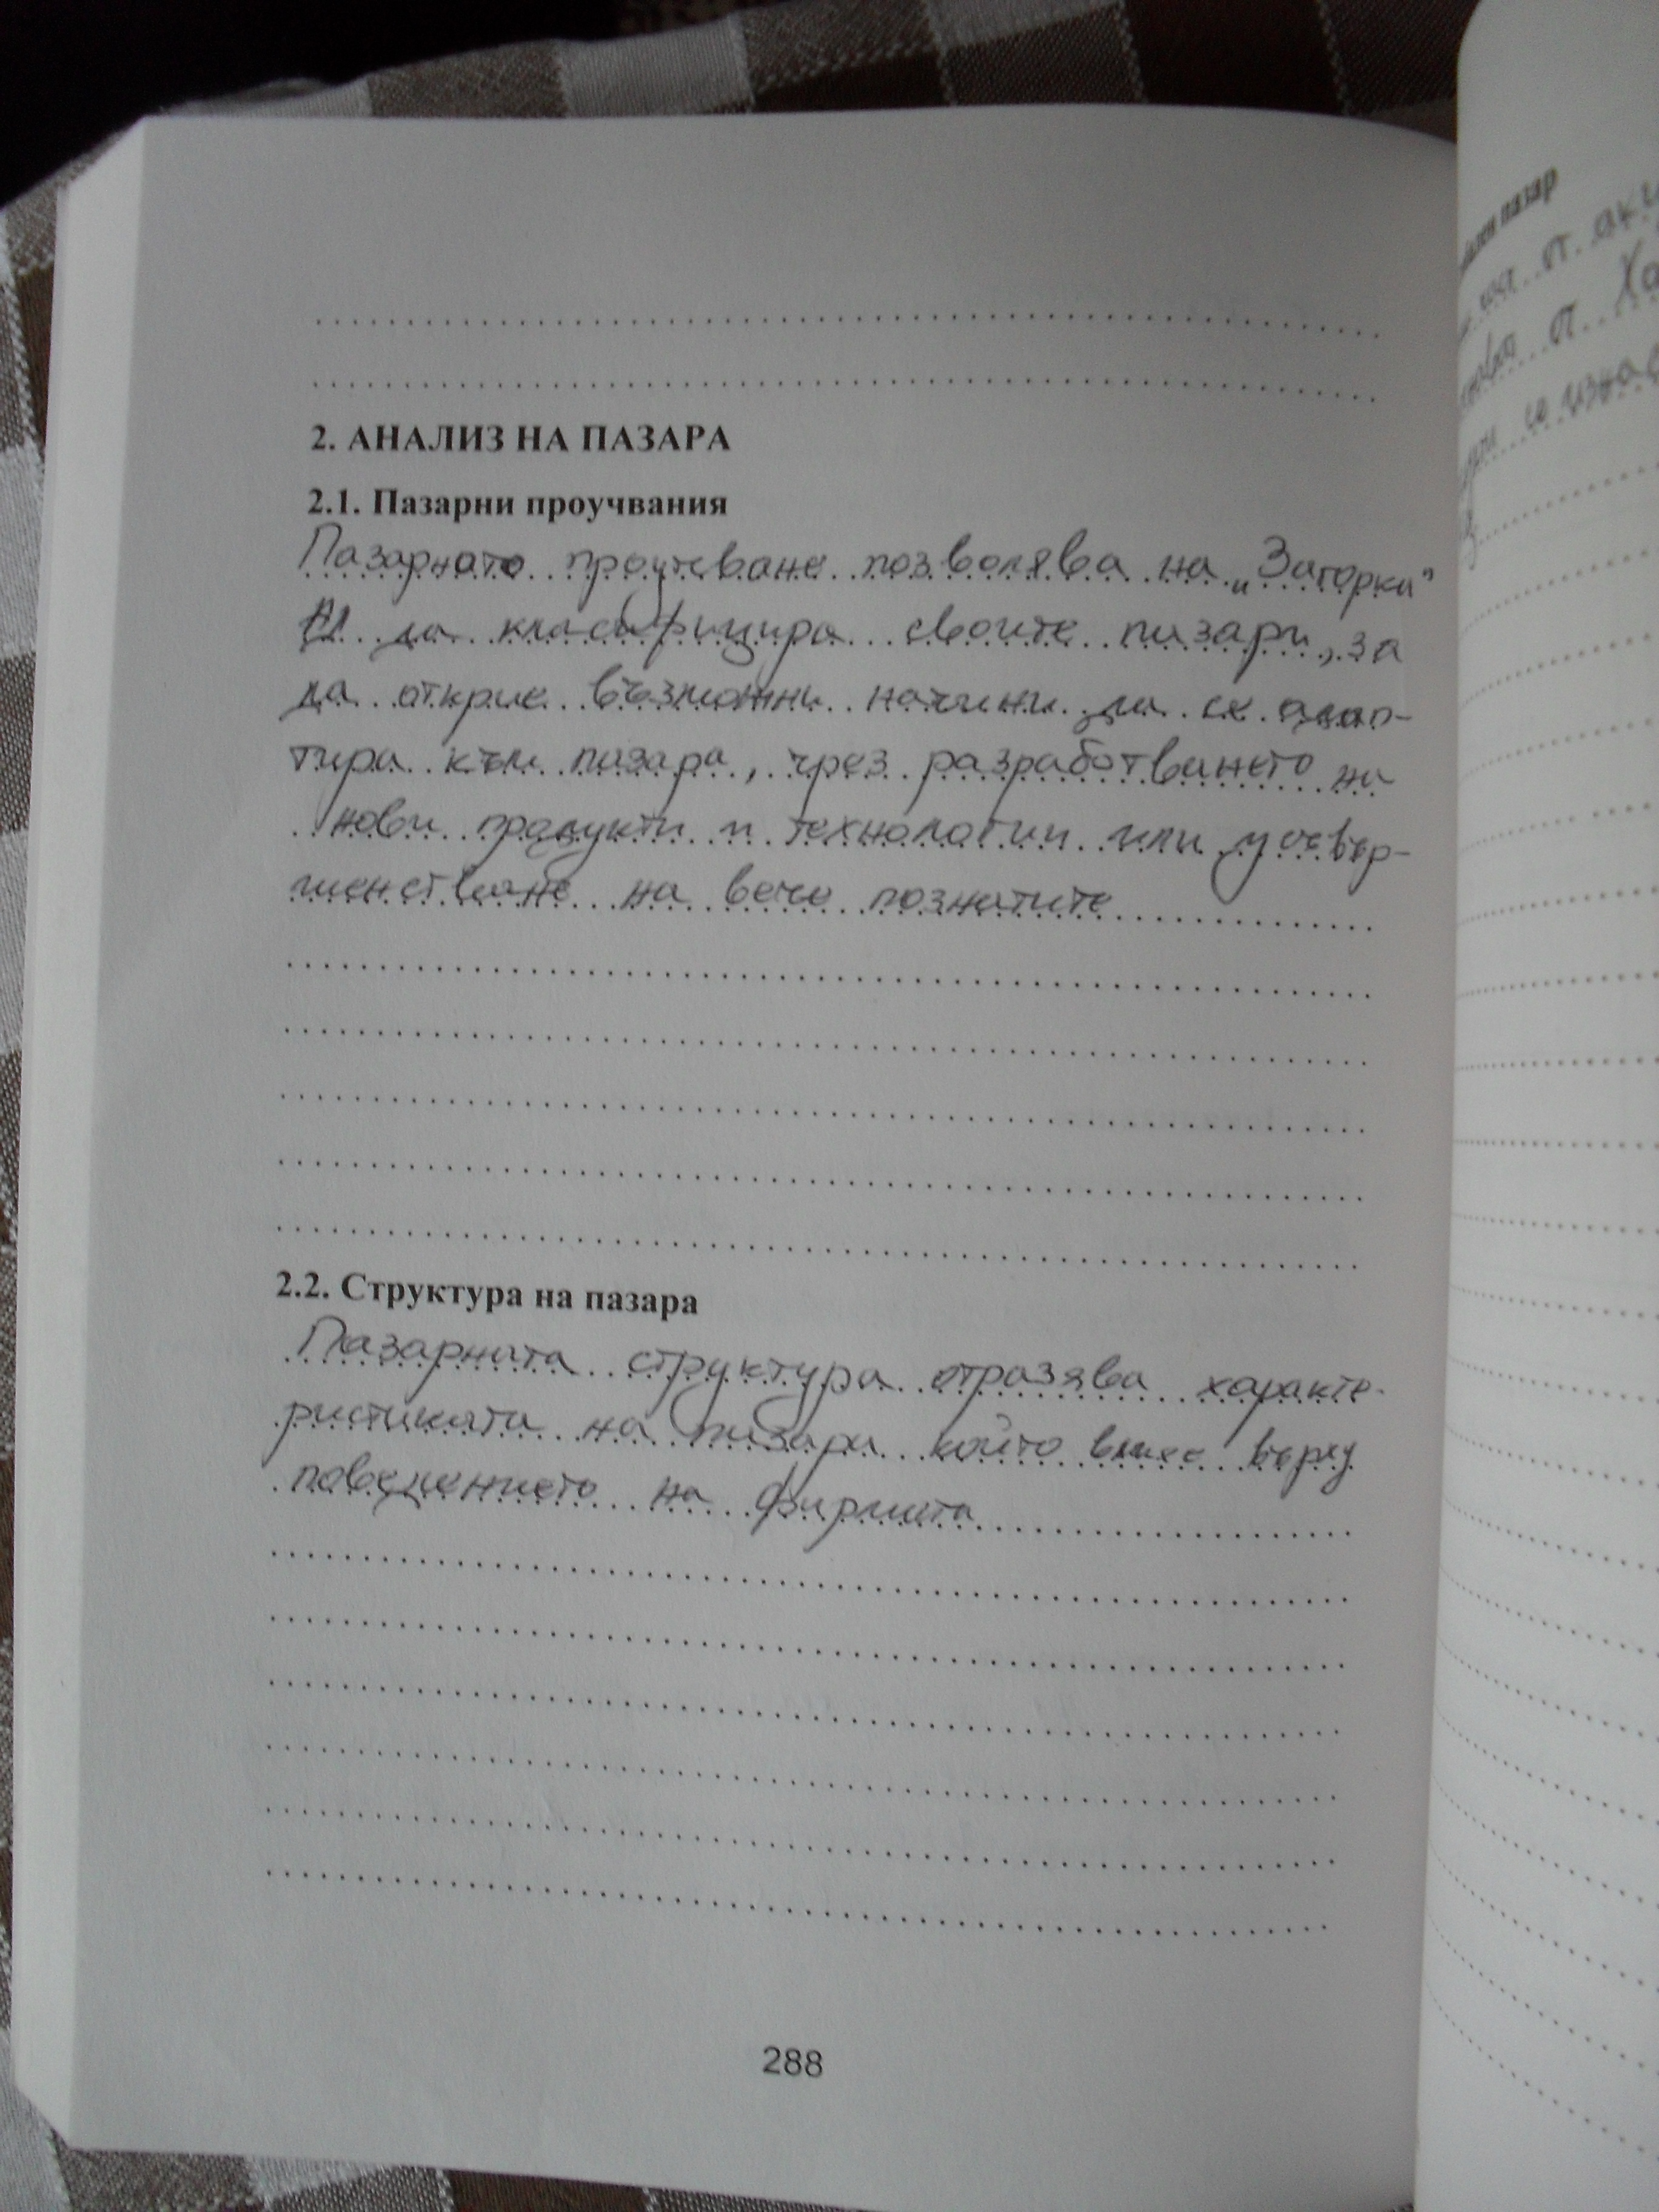 2. АНАЛИЗ НА ПАЗАРА
2.1. Пазарни проучвания
Пазарното проучване позволява на „Загорка"
АД да класифицира своите пазари, за
да открие възможни начини да се адап-
тира към пазара, чрез разработването на
нови продукти и технологии или усъвър-
шенстване на вече познатите
2.2. Структура на пазара
Пазарната структура отразява характе-
ристиката на пазара който влияе върху
поведението на фирмата
288
пазар